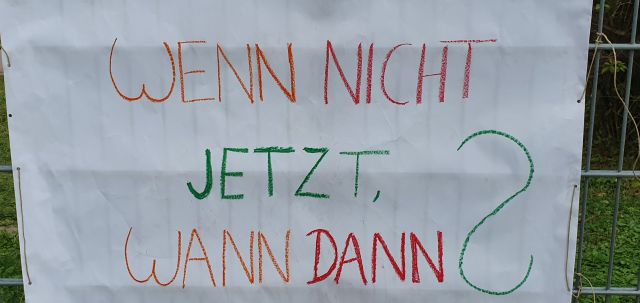 WENN NICHT
JETZT,
WANN DANN?